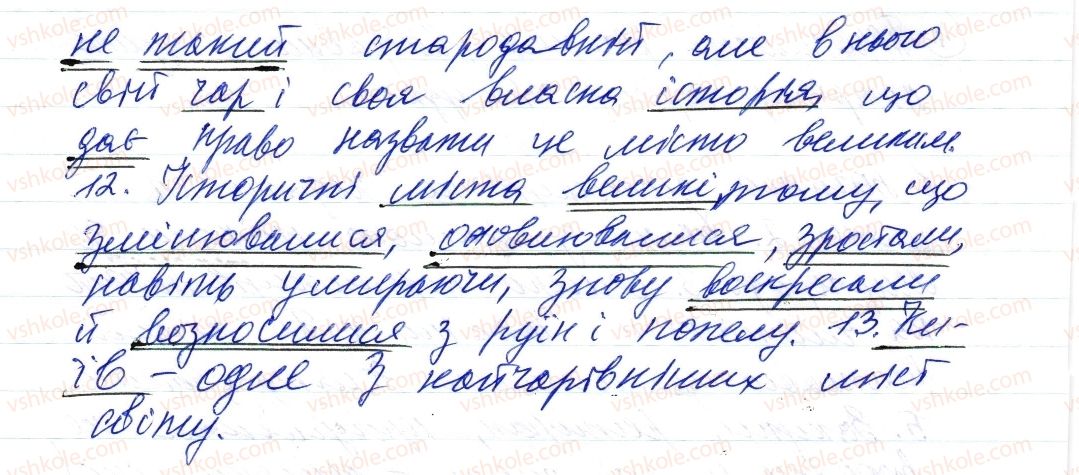 не такий стародавній, але в нього
свій чар і своя власна історія, що
дає право назвати це місто великим.
12. Історичні міста великі, тому, що
змінювалися, оновлювалися, зростали,
навіть умираючи, знову воскресали
й возносилися з руїн і попелу. 13. Ки-
їв – одне з найчарівніших міст
світу.